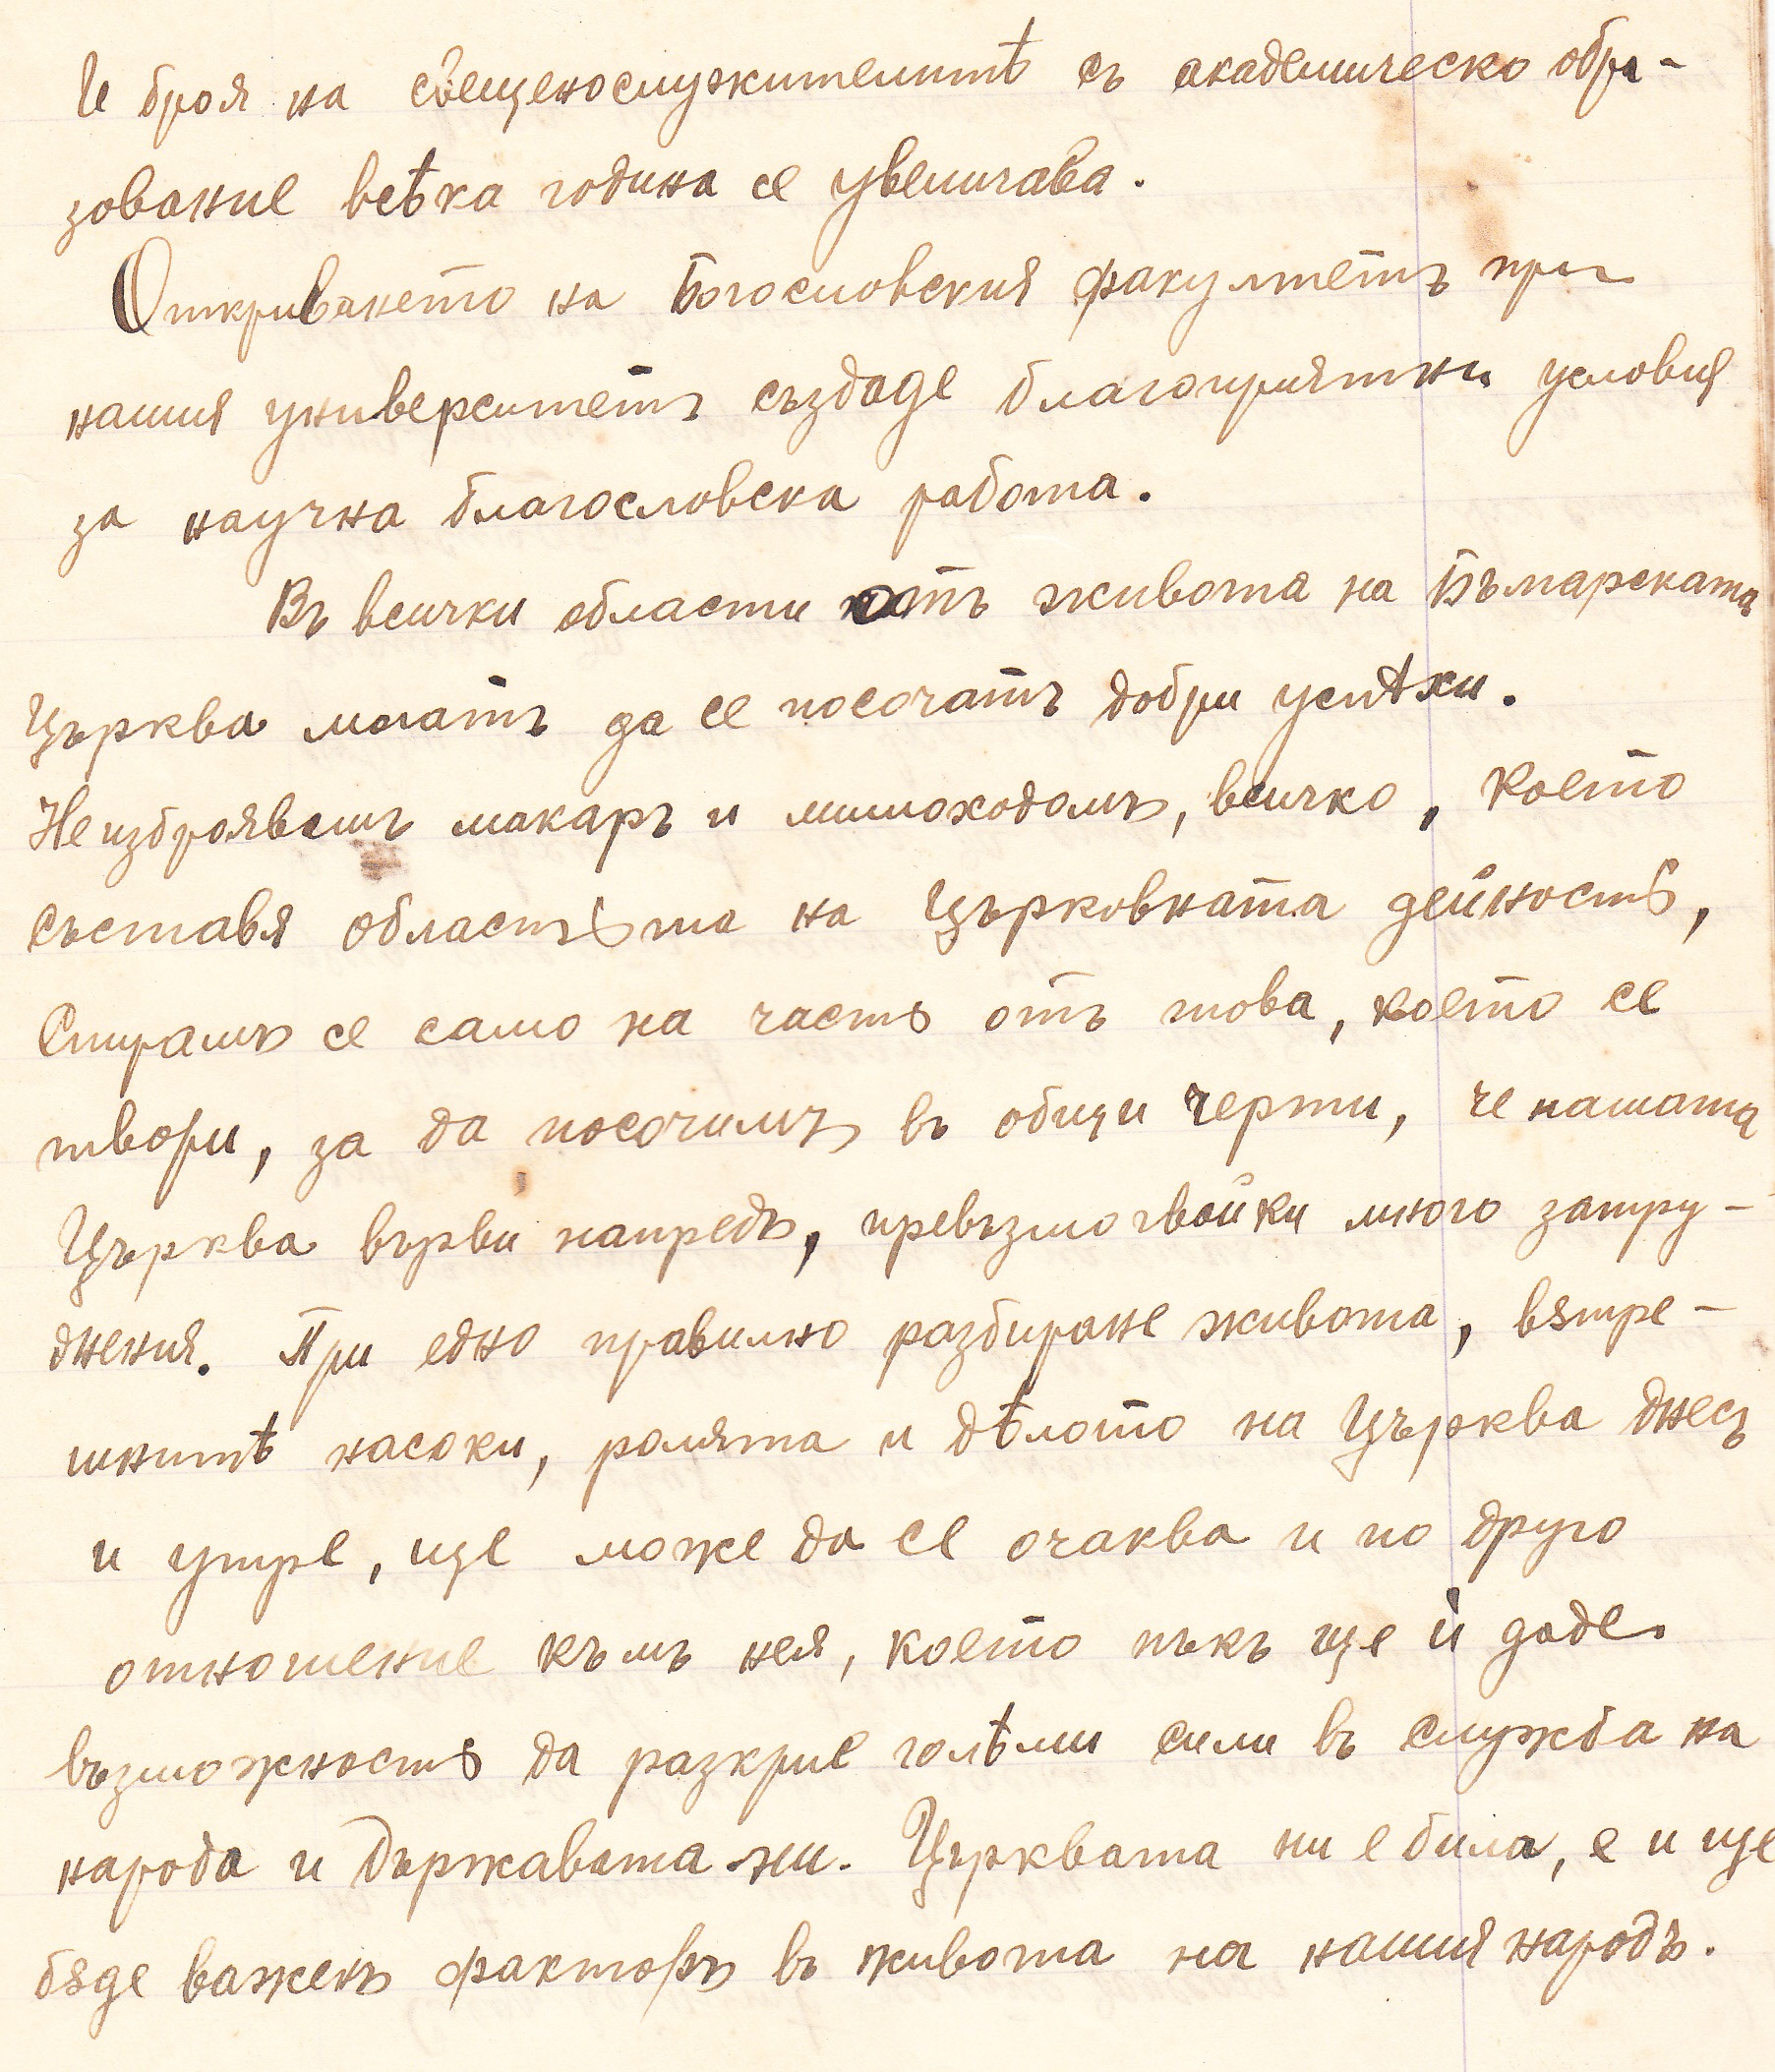 И броя на свещенослужителитѣ съ академическо обра-
зование всѣка година се увеличава.
Откриването на Богословския факултетъ при
нашия университетъ създаде благоприятни условия
за научна благословска работа.
Въ всички области отъ живота на Българската
Църква могатъ да се посочатъ добри успѣхи.
Не изброявамъ макаръ и мимоходомъ, всичко, което
съставя областьта на Църковната дейность,
Спирамъ се само на часть отъ това, което се
твори, за да посочимъ въ общи черти, че нашата
Църква върви напредъ, превъзмогвайки много затру-
днения. При едно правилно разбиране живота, вѫтре-
шнитѣ насоки, ролята и дѣлото на Църква днесъ
и утре, ще може да се очаква и по друго
отношение къмъ нея, което пъкъ ще ѝ даде
възможность да разкрие голѣми сили въ служба на
народа и държавата ни. Църквата ни е била, е и ще
бѫде важенъ факторъ въ живота на нашия народъ.